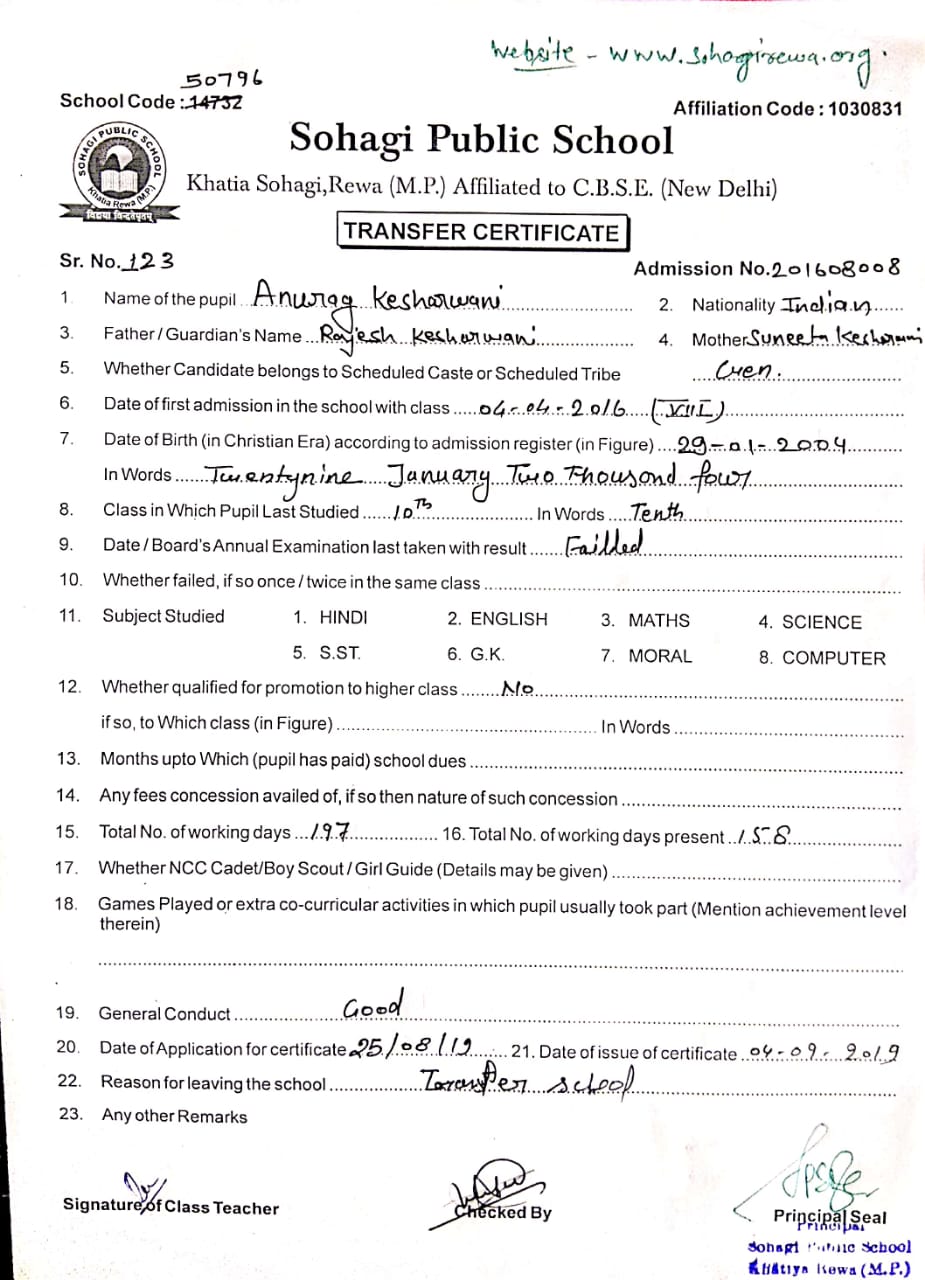 Website - www.sohagirewa.org.
50796
School Code : 14732
Affiliation Code : 1030831
SOHAGI PUBLIC SCHOOL
Khatia Rewa (M.P.)
विद्यया विन्दतेमृतम्
Sohagi Public School
Khatia Sohagi,Rewa (M.P.) Affiliated to C.B.S.E. (New Delhi)
TRANSFER CERTIFICATE
Sr. No. 123
Admission No. 201608008
1. Name of the pupil Anurag Kesharwani 2. Nationality Indian
3. Father / Guardian's Name Rajesh Kesharwani 4. Mother Suneeta Kesharwani
5. Whether Candidate belongs to Scheduled Caste or Scheduled Tribe Gen.
6. Date of first admission in the school with class 04-04-2016 (VIII)
7. Date of Birth (in Christian Era) according to admission register (in Figure) 29-01-2004
In Words Twentynine January Two Thousand four
8. Class in Which Pupil Last Studied 10Th In Words Tenth
9. Date / Board's Annual Examination last taken with result Failled
10. Whether failed, if so once / twice in the same class
11. Subject Studied 1. HINDI 2. ENGLISH 3. MATHS 4. SCIENCE
5. S.ST. 6. G.K. 7. MORAL 8. COMPUTER
12. Whether qualified for promotion to higher class No
if so, to Which class (in Figure) In Words
13. Months upto Which (pupil has paid) school dues
14. Any fees concession availed of, if so then nature of such concession
15. Total No. of working days 197 16. Total No. of working days present 158
17. Whether NCC Cadet/Boy Scout / Girl Guide (Details may be given)
18. Games Played or extra co-curricular activities in which pupil usually took part (Mention achievement level
therein)
19. General Conduct Good
20. Date of Application for certificate 25/08/19 21. Date of issue of certificate 04-09-2019
22. Reason for leaving the school Transfer school
23. Any other Remarks
Signature of Class Teacher
Checked By
Principal Seal
Principal
Sohagi Public School
Khatiya Rewa (M.P.)